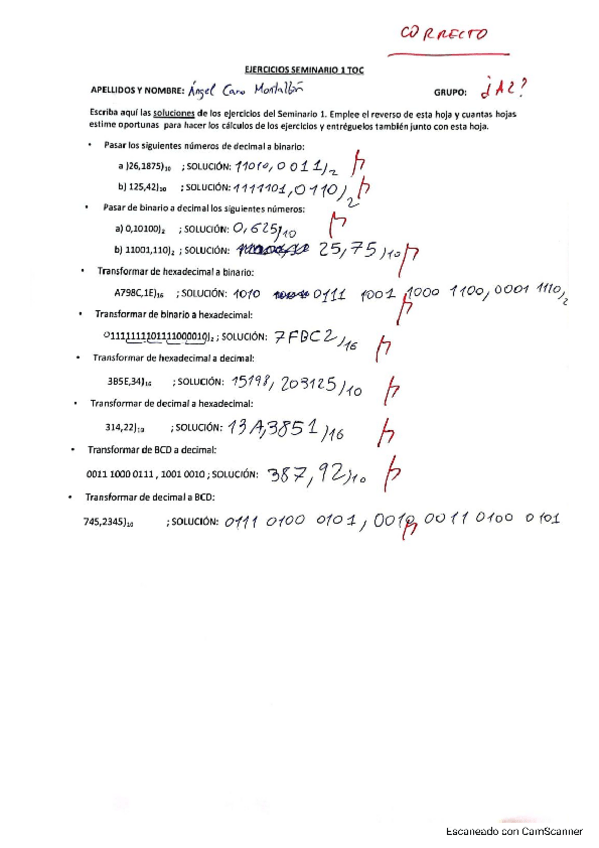 CORRECTO
EJERCICIOS SEMINARIO 1 TOC
APELLIDOS Y NOMBRE: Ángel Cano Montalbán GRUPO: ¿A2?
Escriba aquí las soluciones de los ejercicios del Seminario 1. Emplee el reverso de esta hoja y cuantas hojas
estime oportunas para hacer los cálculos de los ejercicios y entréguelos también junto con esta hoja.
• Pasar los siguientes números de decimal a binario:
a )26,1875)10 ; SOLUCIÓN: 11010,0011)2
b) 125,42)10 ; SOLUCIÓN: 1111101,0110)2
• Pasar de binario a decimal los siguientes números:
a) 0,10100)2 ; SOLUCIÓN: 0,625)10
b) 11001,110)2 ; SOLUCIÓN: 25,75)10
• Transformar de hexadecimal a binario:
A798C,1E)16 ; SOLUCIÓN: 1010 0111 1001 1000 1100,0001 1110)2
• Transformar de binario a hexadecimal:
01111111101111000010)2 ; SOLUCIÓN: 7FBC2)16
• Transformar de hexadecimal a decimal:
3B5E,34)16 ; SOLUCIÓN: 15198,203125)10
• Transformar de decimal a hexadecimal:
314,22)10 ; SOLUCIÓN: 13A,3851)16
• Transformar de BCD a decimal:
0011 1000 0111 , 1001 0010 ; SOLUCIÓN: 387,92)10
• Transformar de decimal a BCD:
745,2345)10 ; SOLUCIÓN: 0111 0100 0101, 0010 0011 0100 0101
Escaneado con CamScanner